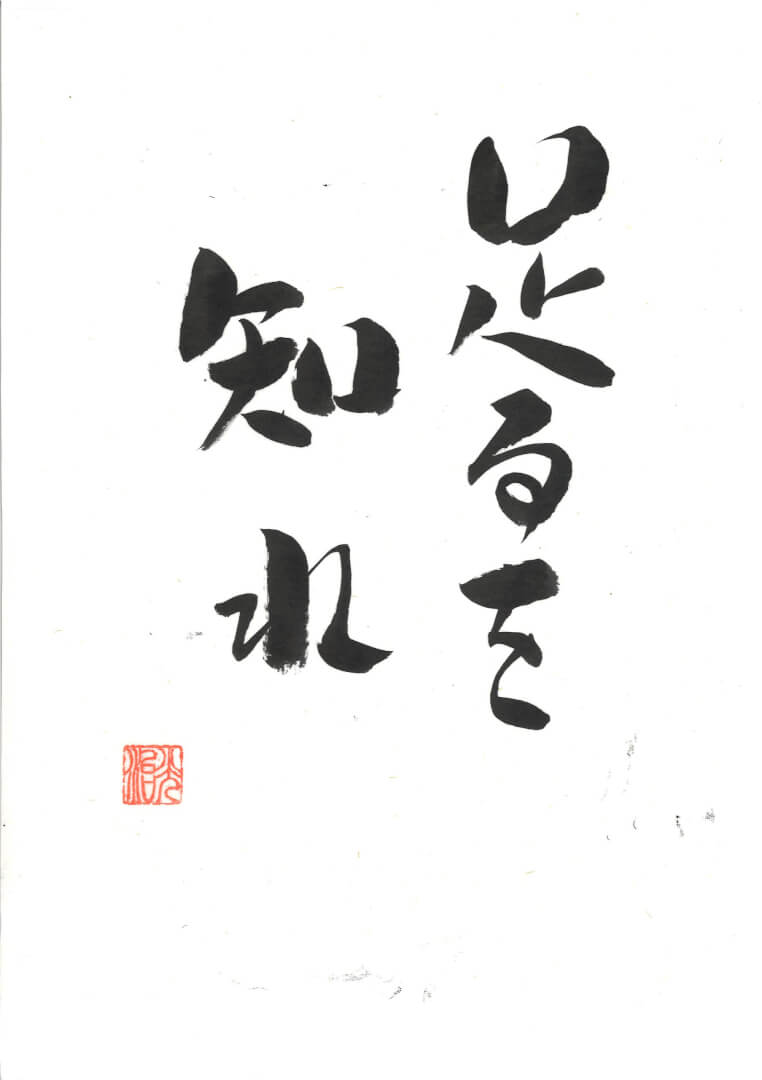 足るを
知れ